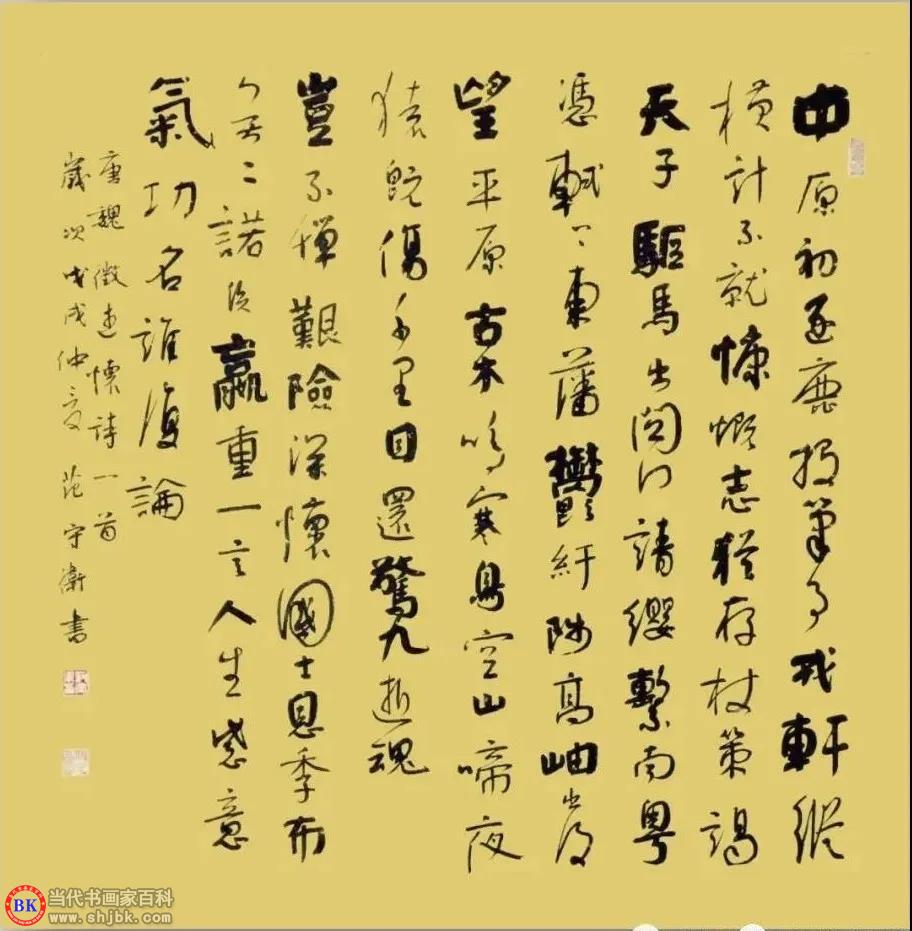 中原初逐鹿投筆事戎軒縱
橫計不就慷慨志猶存杖策謁
天子驅馬出關門請纓繫南粵
憑軾下東藩鬱紆陟高岫出沒
望平原古木鳴寒鳥空山啼夜
猿既傷千里目還驚九逝魂
豈不憚艱險深懷國士恩季布
無二諾侯嬴重一言人生感意
氣功名誰復論
唐魏徵述懷詩一首
歲次戊戌仲夏范守衛書
BK
当代书画家百科
www.shjbk.com